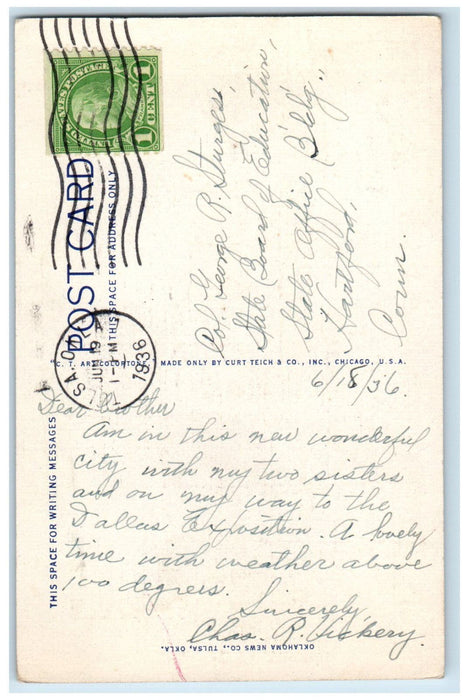 UNITED STATES POSTAGE
1 CENT 1
POST CARD
THIS SPACE FOR ADDRESS ONLY
TULSA OKLA
JUN 19
1936
Col. George R. Sturges,
State Board of Education,
State Office Bldg.,
Hartford,
Conn.
C. T. ART-COLORTONE MADE ONLY BY CURT TEICH & CO., INC., CHICAGO, U.S.A.
6/18/36.
THIS SPACE FOR WRITING MESSAGES
Dear Brother
Am in this new wonderful
city with my two sisters
and on my way to the
Dallas Exposition. A lovely
time with weather above
100 degrees.
Sincerely
Chas. R. Vickery.
OKLAHOMA NEWS CO., TULSA, OKLA.